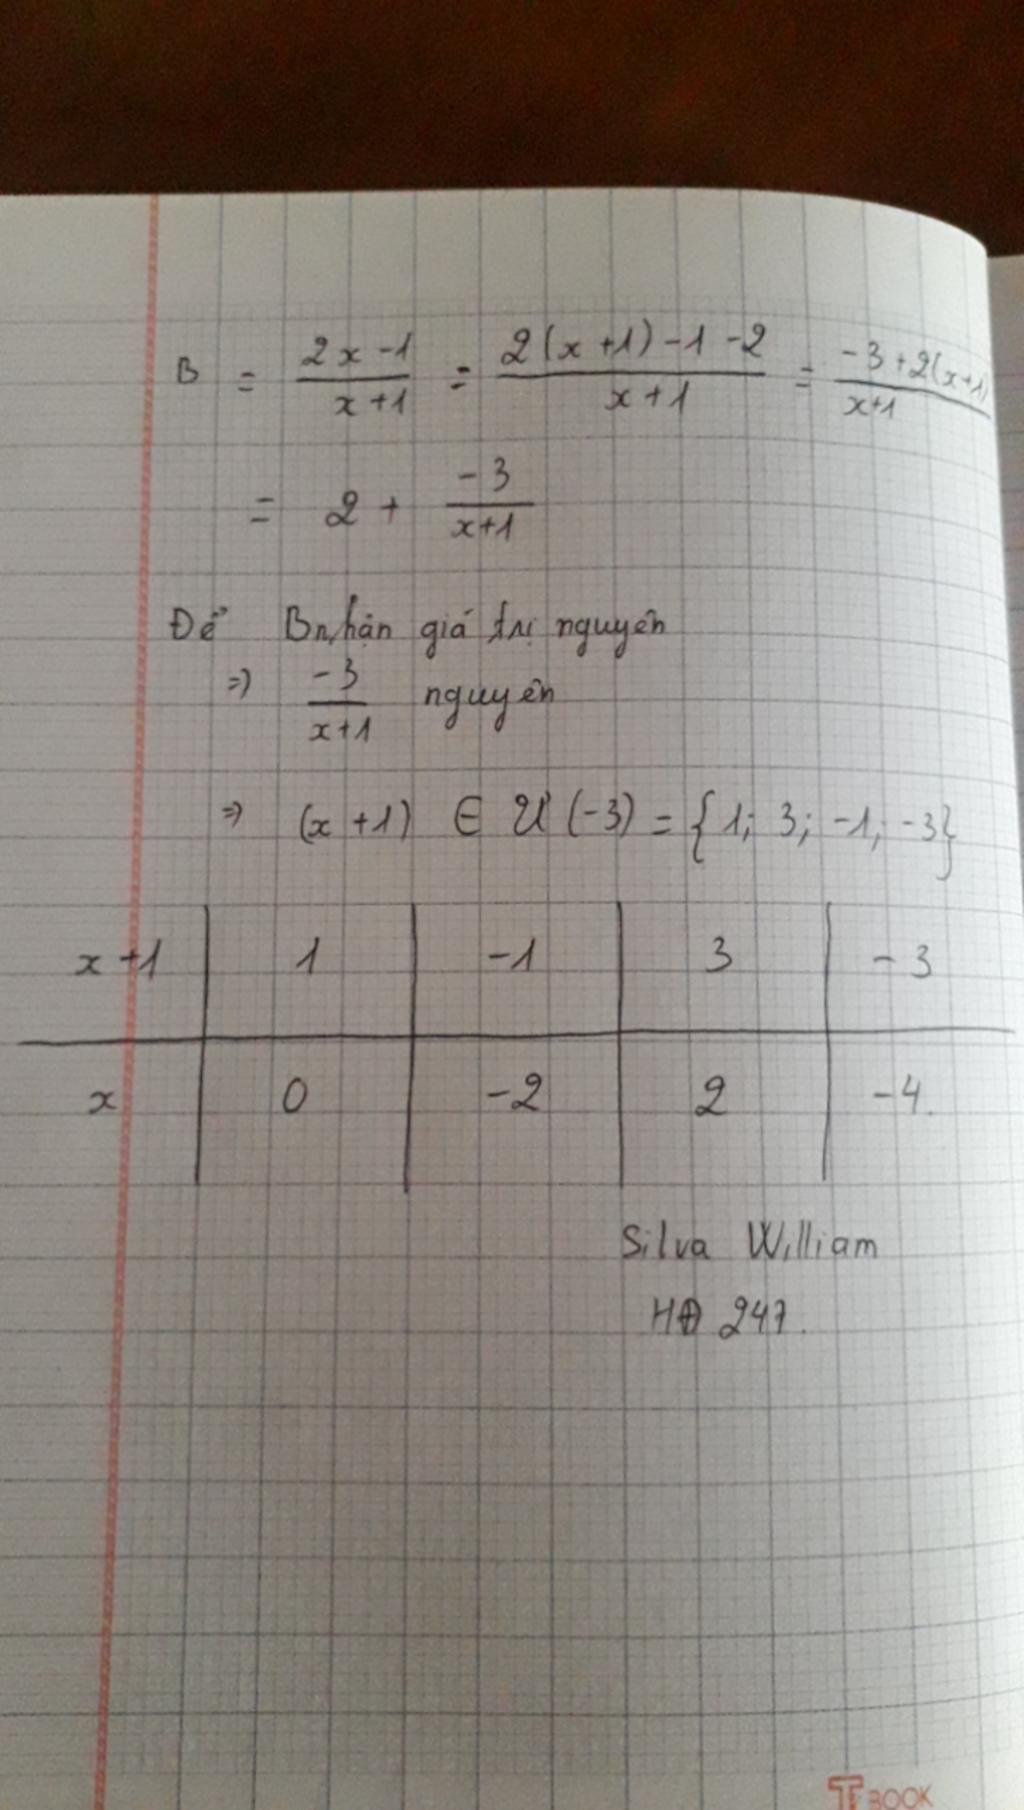 B = (2x -1)/(x +1) = (2(x +1) -1 -2)/(x +1) = (-3 +2(x+1))/(x+1)
= 2 + (-3)/(x+1)
Để B nhận giá trị nguyên
=> (-3)/(x+1) nguyên
=> (x +1) ∈ Ư (-3) = {1; 3; -1; -3}
x +1 | 1 | -1 | 3 | -3
x | 0 | -2 | 2 | -4.
Silva William
HĐ 247.
T BOOK